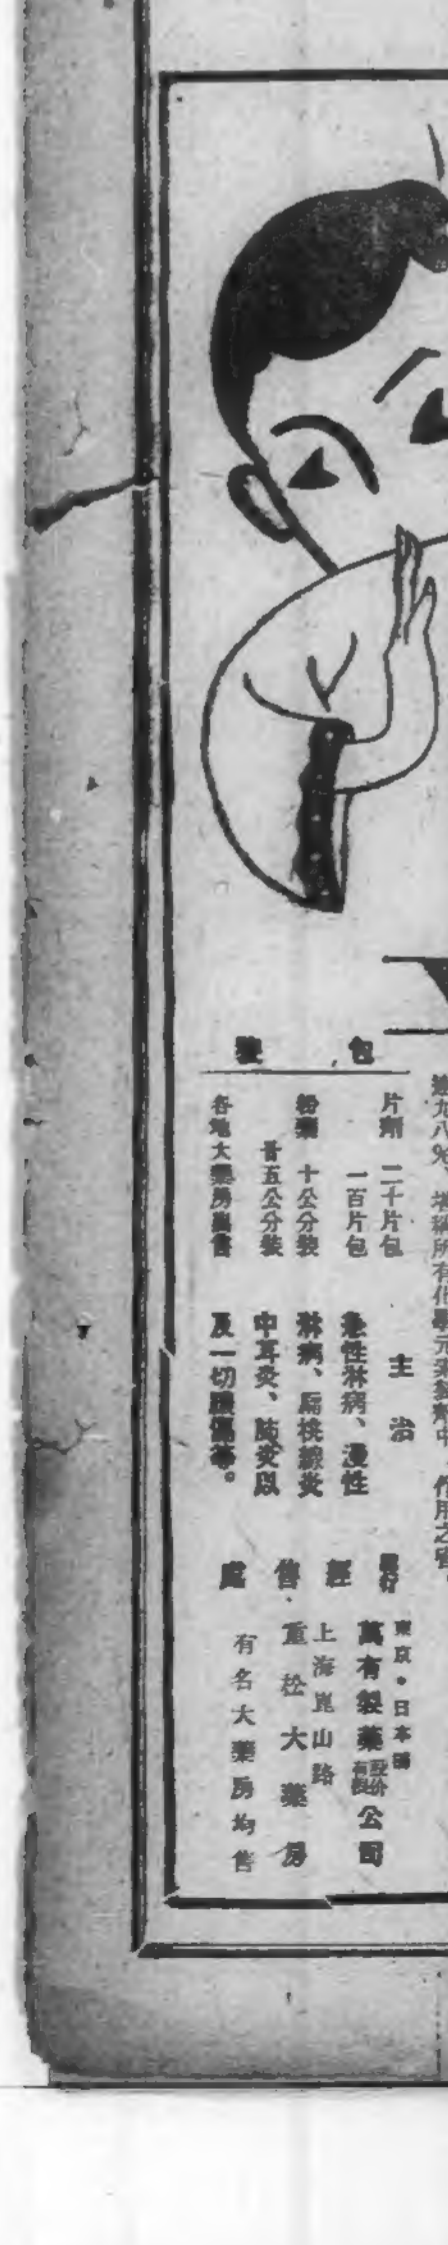 達九八%
所有化學元素
中，作用之
包裝
片劑　二千片包
一百片包
粉藥　十公分裝
廿五公分裝
各地大藥房均售
主治
急性淋病、漫性
淋病、扁桃腺炎
中耳炎、肺炎以
及一切
等。
發行
東京・日本
萬有製藥股份有限公司
經售處
上海崑山路
重松大藥房
有名大藥房均售